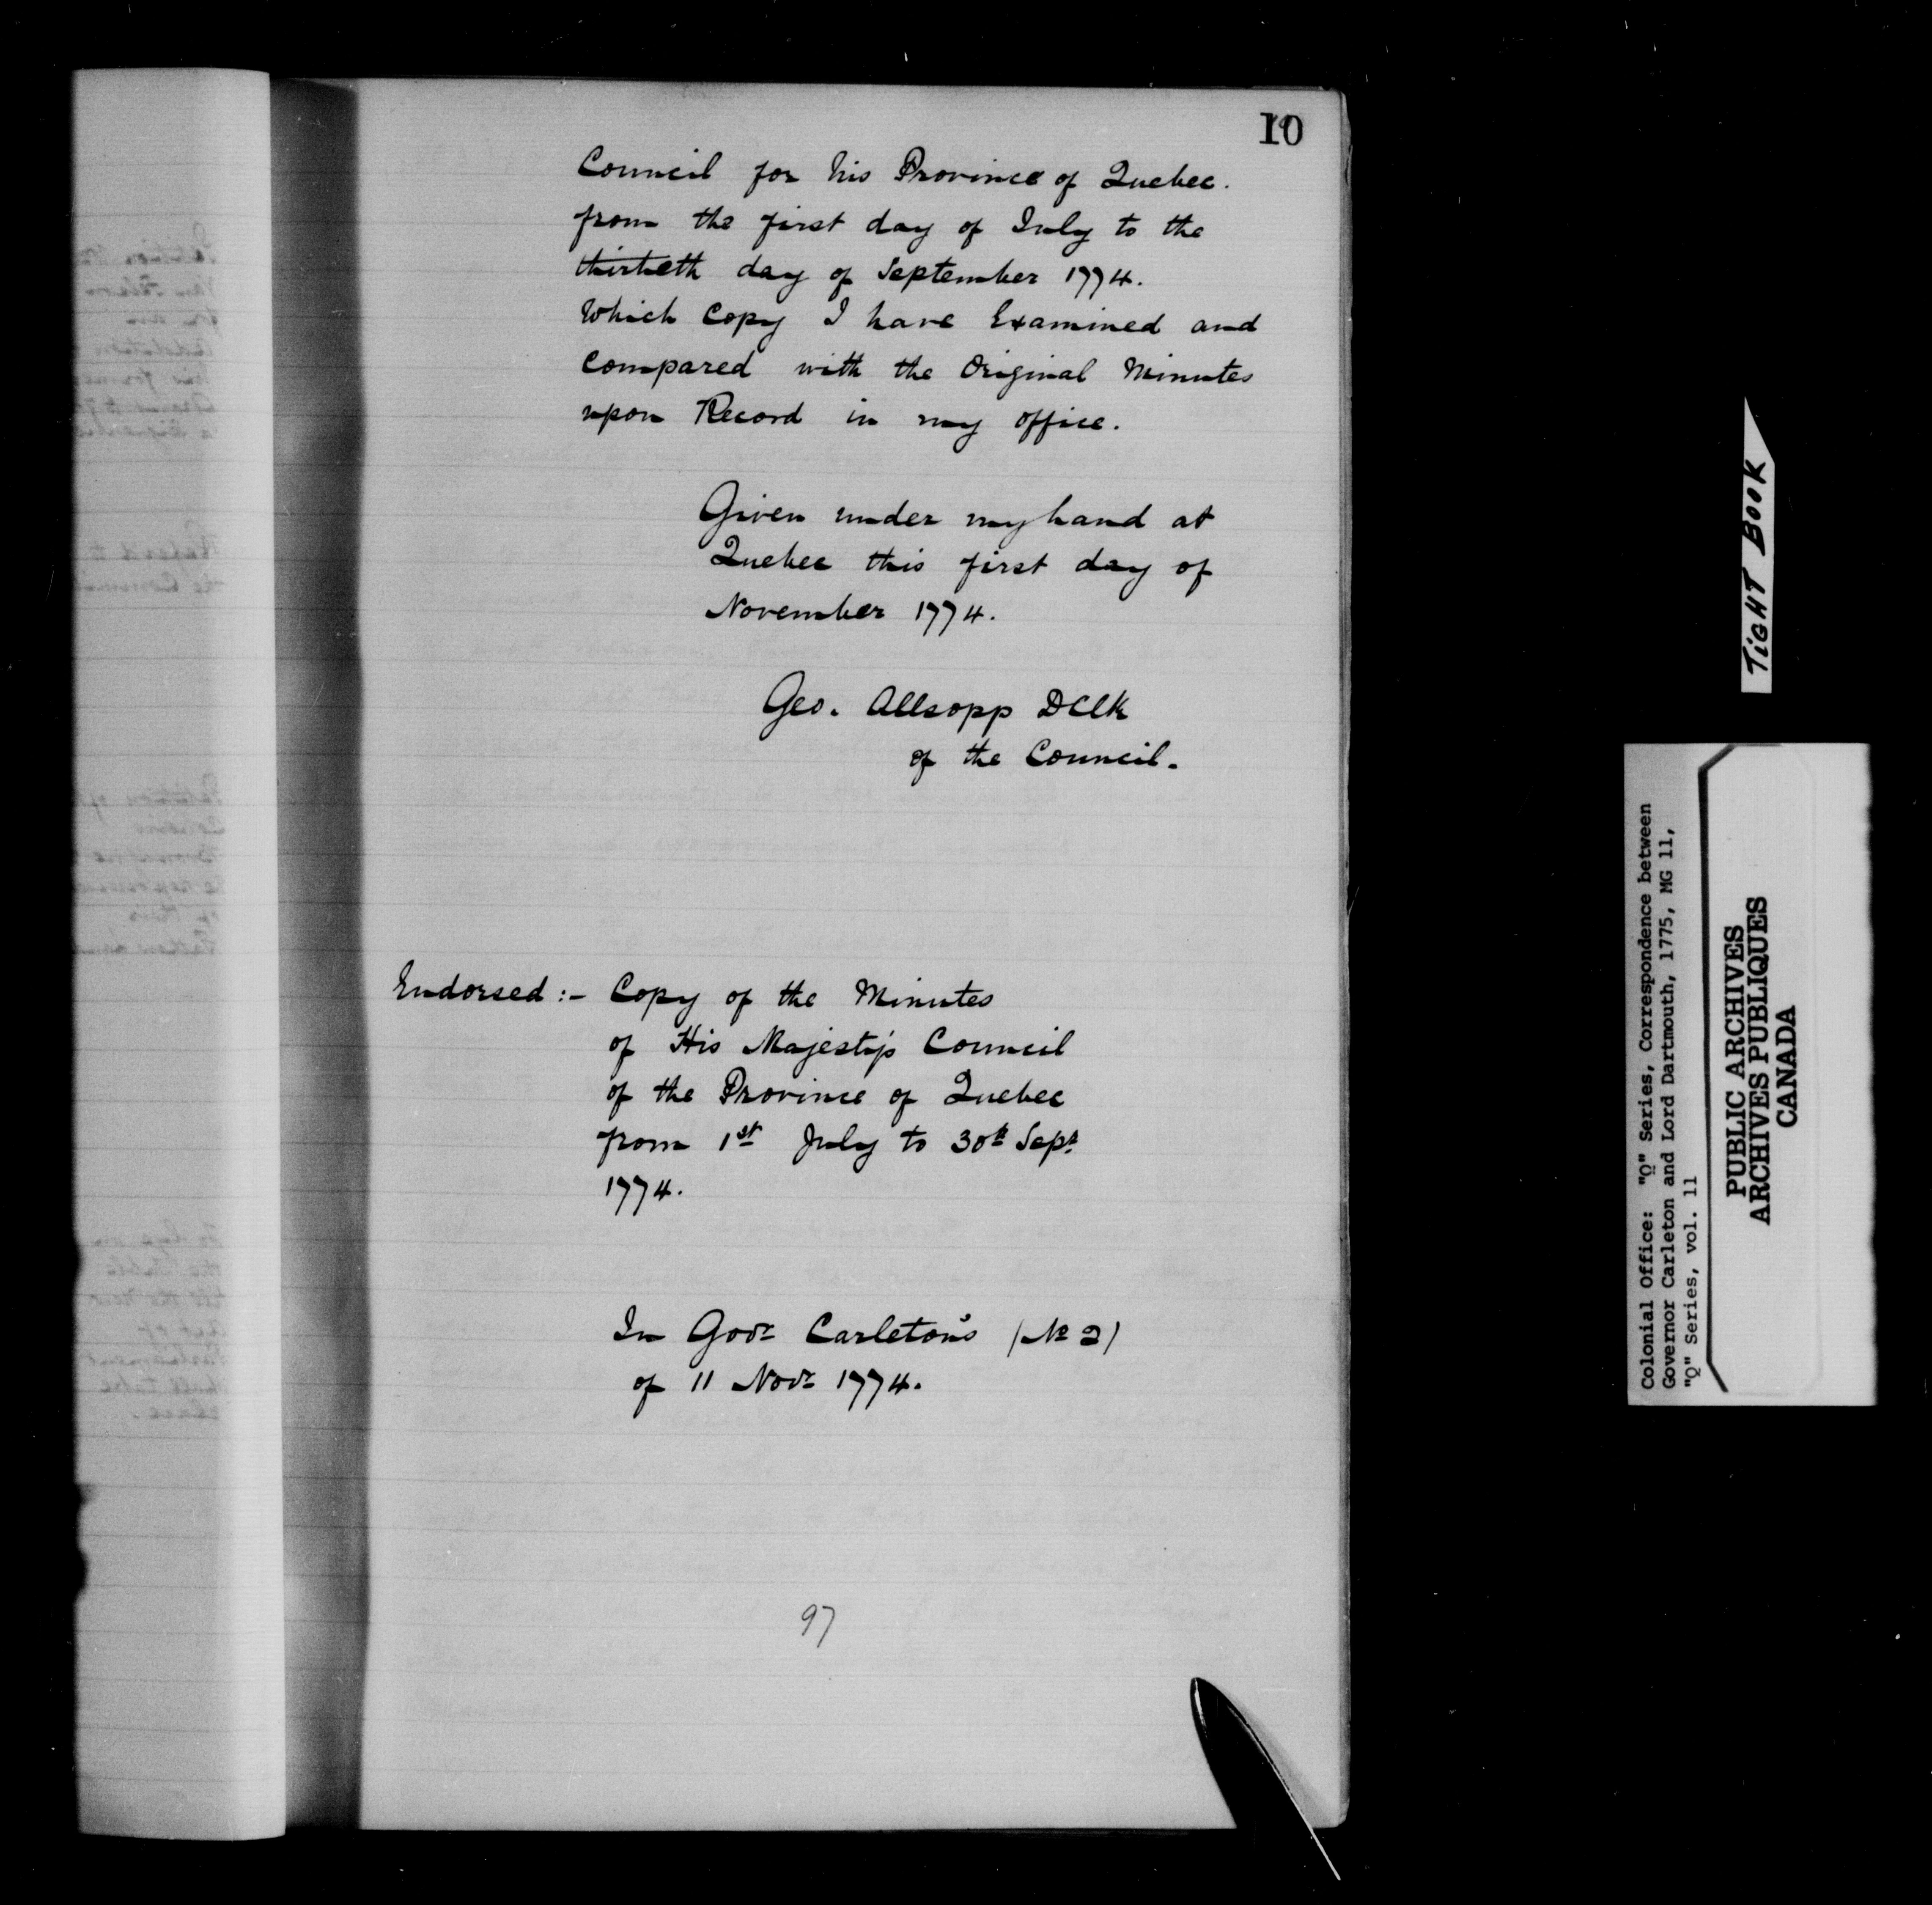 10
Council for his Province of Quebec.
from the first day of July to the
thirtieth day of September 1774.
Which Copy I have Examined and
Compared with the Original Minutes
upon Record in my office.
Given under my hand at
Quebec this first day of
November 1774.
Geo. Allsopp DClk
of the Council.
Endorsed :- Copy of the Minutes
of His Majesty's Council
of the Province of Quebec
from 1st July to 30th Sept.
1774.
In Govr Carleton's (No 2)
of 11 Novr 1774.
97
TIGHT BOOK
Colonial Office: "Q" Series, Correspondence between
Governor Carleton and Lord Dartmouth, 1775, MG 11,
"Q" Series, vol. 11
PUBLIC ARCHIVES
ARCHIVES PUBLIQUES
CANADA